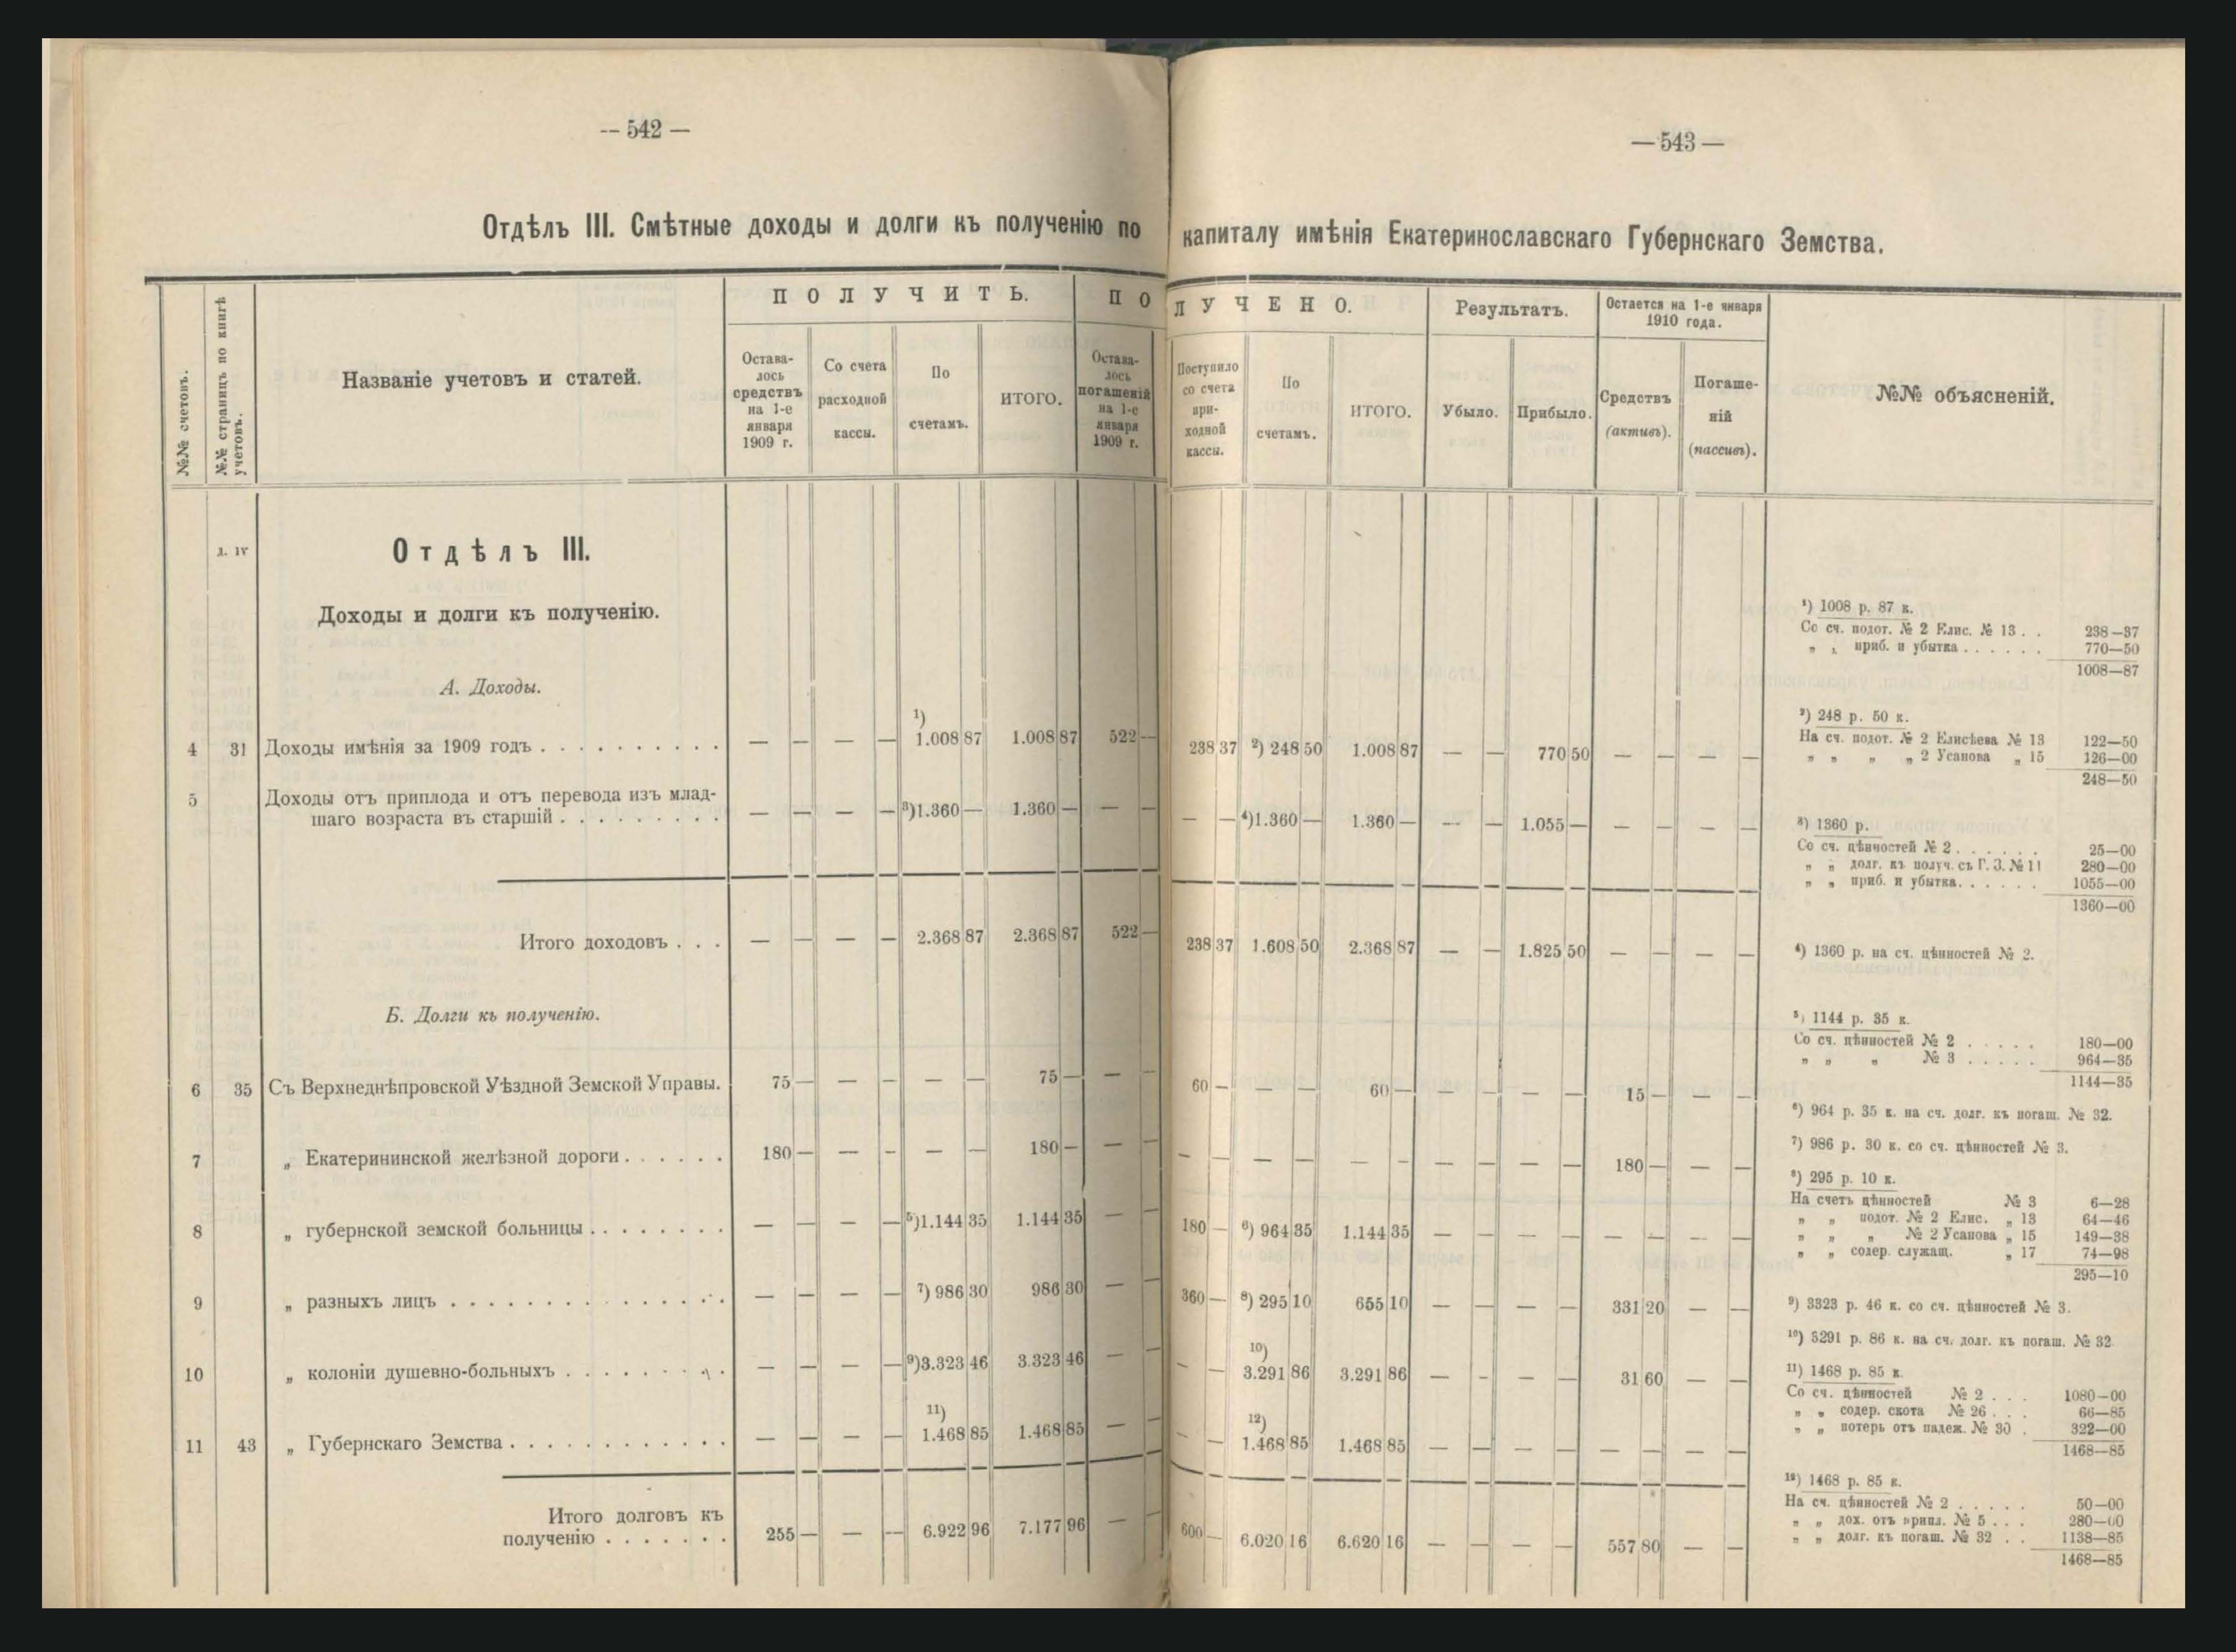 -- 542 —
Отдѣлъ III. Смѣтные доходы и долги къ полученію по
№№ счетовъ.
№№ страницъ по книгѣ учетовъ.
Названіе учетовъ и статей.
ПОЛУЧИТЬ.
ПО
Остава-
лось
средствъ
на 1-е
января
1909 г.
Со счета
расходной
кассы.
По
счетамъ.
ИТОГО.
Остава-
лось
погашеній
на 1-е
января
1909 г.
л. IV
Отдѣлъ III.
Доходы и долги къ полученію.
А. Доходы.
4 31 Доходы имѣнія за 1909 годъ . . . . . . . . . . — — — — ¹) 1.008 87 1.008 87 522 —
5 Доходы отъ приплода и отъ перевода изъ млад-
шаго возраста въ старшій . . . . . . . . . — — — — ³)1.360 — 1.360 — — —
Итого доходовъ . . . — — — — 2.368 87 2.368 87 522 —
Б. Долги къ полученію.
6 35 Съ Верхнеднѣпровской Уѣздной Земской Управы. 75 — — — — — 75 — — —
7 „ Екатерининской желѣзной дороги . . . . . . 180 — — — — — 180 — — —
8 „ губернской земской больницы . . . . . . . . — — — — ⁵)1.144 35 1.144 35 — —
9 „ разныхъ лицъ . . . . . . . . . . . . . . . — — — — ⁷) 986 30 986 30 — —
10 „ колоніи душевно-больныхъ . . . . . . . . . — — — — ⁹)3.323 46 3.323 46 — —
11 43 „ Губернскаго Земства . . . . . . . . . . . . — — — — ¹¹) 1.468 85 1.468 85 — —
Итого долговъ къ
полученію . . . . . . . 255 — — — 6.922 96 7.177 96 — —
— 543 —
капиталу имѣнія Екатеринославскаго Губернскаго Земства.
ЛУЧЕНО.
Результатъ.
Остается на 1-е января
1910 года.
№№ объясненій.
Поступило
со счета
при-
ходной
кассы.
По
счетамъ.
ИТОГО.
Убыло.
Прибыло.
Средствъ
(активъ).
Погаше-
ній
(пассивъ).
238 37 ²) 248 50 1.008 87 — — 770 50 — — — —
— — ⁴)1.360 — 1.360 — — — 1.055 — — — — —
238 37 1.608 50 2.368 87 — — 1.825 50 — — — —
60 — — — 60 — — — — — 15 — — —
— — — — — — — — — — 180 — — —
180 — ⁶) 964 35 1.144 35 — — — — — — — —
360 — ⁸) 295 10 655 10 — — — — 331 20 — —
— — ¹⁰) 3.291 86 3.291 86 — — — — 31 60 — —
— — ¹²) 1.468 85 1.468 85 — — — — — — — —
600 — 6.020 16 6.620 16 — — — — 557 80 — —
¹) 1008 р. 87 к.
Со сч. подот. № 2 Елис. № 13 . . 238—37
„ „ приб. и убытка . . . . . . 770—50
1008—87
²) 248 р. 50 к.
На сч. подот. № 2 Елисѣева № 13 122—50
„ „ „ „ 2 Усанова „ 15 126—00
248—50
³) 1360 р.
Со сч. цѣнностей № 2 . . . . . . 25—00
„ „ долг. къ получ. съ Г. З. № 11 280—00
„ „ приб. и убытка . . . . . . 1055—00
1360—00
⁴) 1360 р. на сч. цѣнностей № 2.
⁵) 1144 р. 35 к.
Со сч. цѣнностей № 2 . . . . . 180—00
„ „ „ № 3 . . . . . 964—35
1144—35
⁶) 964 р. 35 к. на сч. долг. къ погаш. № 32.
⁷) 986 р. 30 к. со сч. цѣнностей № 3.
⁸) 295 р. 10 к.
На счетъ цѣнностей № 3 6—28
„ „ подот. № 2 Елис. „ 13 64—46
„ „ „ № 2 Усанова „ 15 149—38
„ „ содер. служащ. „ 17 74—98
295—10
⁹) 3323 р. 46 к. со сч. цѣнностей № 3.
¹⁰) 3291 р. 86 к. на сч. долг. къ погаш. № 32
¹¹) 1468 р. 85 к.
Со сч. цѣнностей № 2 . . . 1080—00
„ „ содер. скота № 26 . . . 66—85
„ „ потерь отъ падеж. № 30 . 322—00
1468—85
¹²) 1468 р. 85 к.
На сч. цѣнностей № 2 . . . . . 50—00
„ „ дох. отъ припл. № 5 . . . 280—00
„ „ долг. къ погаш. № 32 . . 1138—85
1468—85